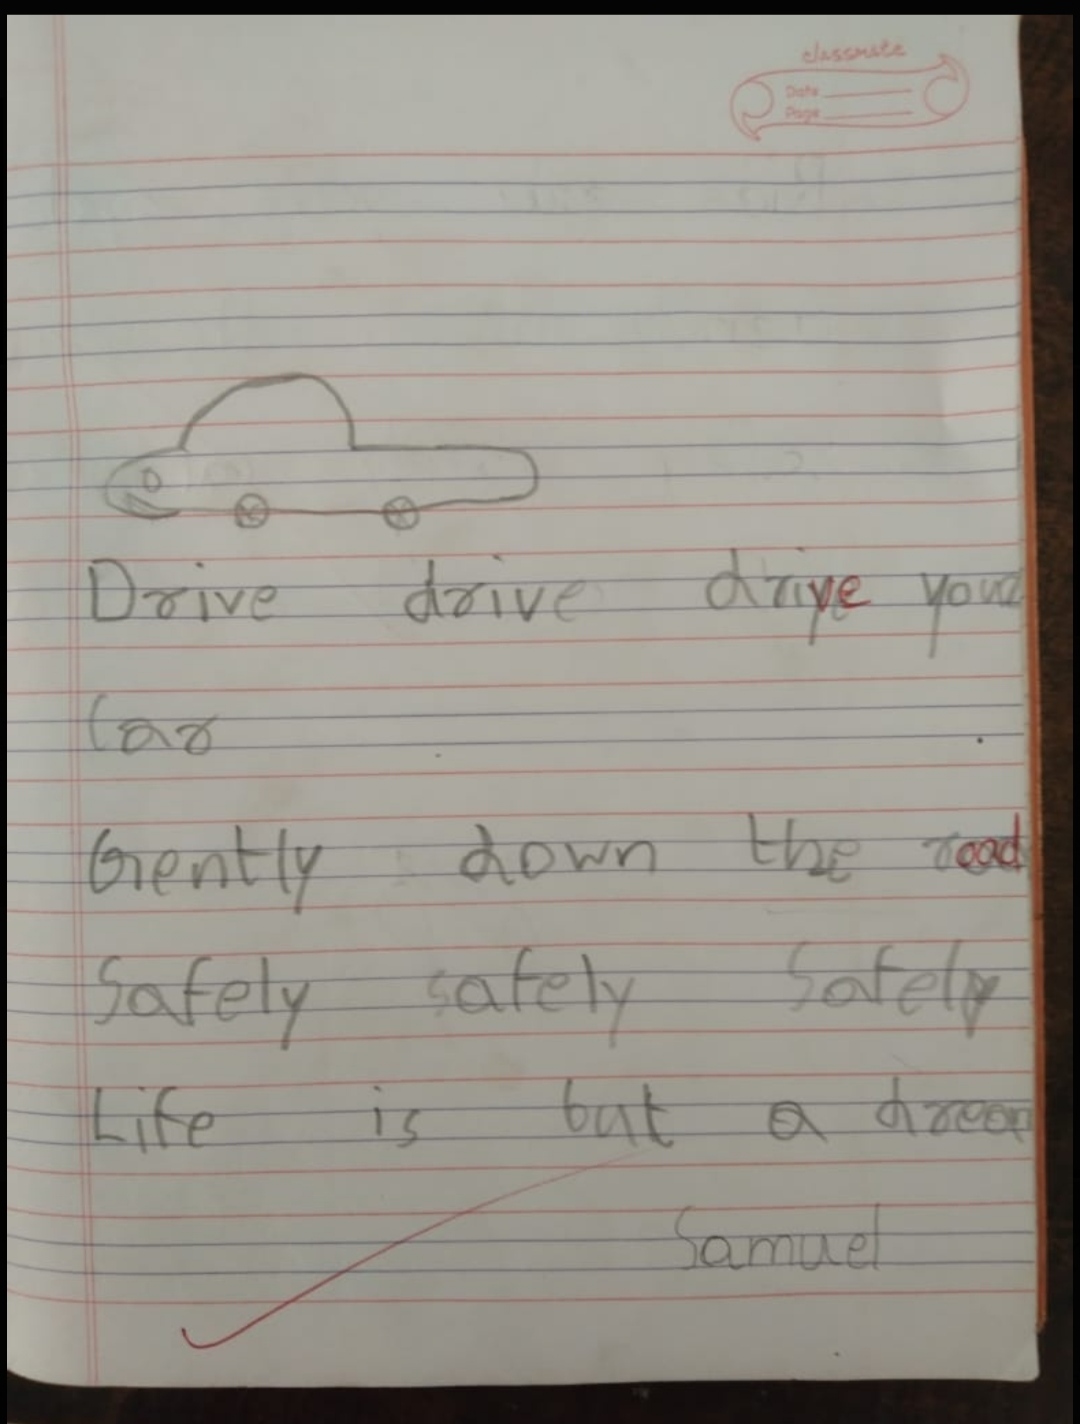 classmate
Date
Page
Drive drive drive your
Car
Gently down the road
Safely safely Safely
Life is but a dream
Samuel